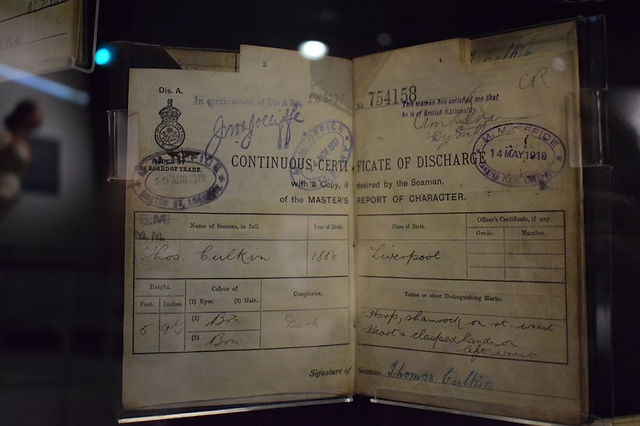 3
4
Dis. A.
In continuation of Dis A No.
No. 754158
This seaman has satisfied me that
he is of British Nationality
CR
M. M. OFFICE
14 MAY 1918
OFFICE
ISSUED BY
THE BOARD OF TRADE.
CONTINUOUS CERTIFICATE OF DISCHARGE
with Copy, if desired by the Seaman,
of the MASTER'S REPORT OF CHARACTER.
Name of Seaman, in full. Year of Birth. Place of Birth. Officer's Certificate, if any.
Grade. Number.
Thos. Culkin 1886 Liverpool
Height. Colour of Complexion. Tattoo or other Distinguishing Marks.
Feet. Inches. (1) Eyes. (2) Hair.
5 (1) Brn Dark Harp, shamrock on rt. wrist
(2) Brn Heart & clasped hands on
left wrist
Signature of Seaman Thomas Culkin